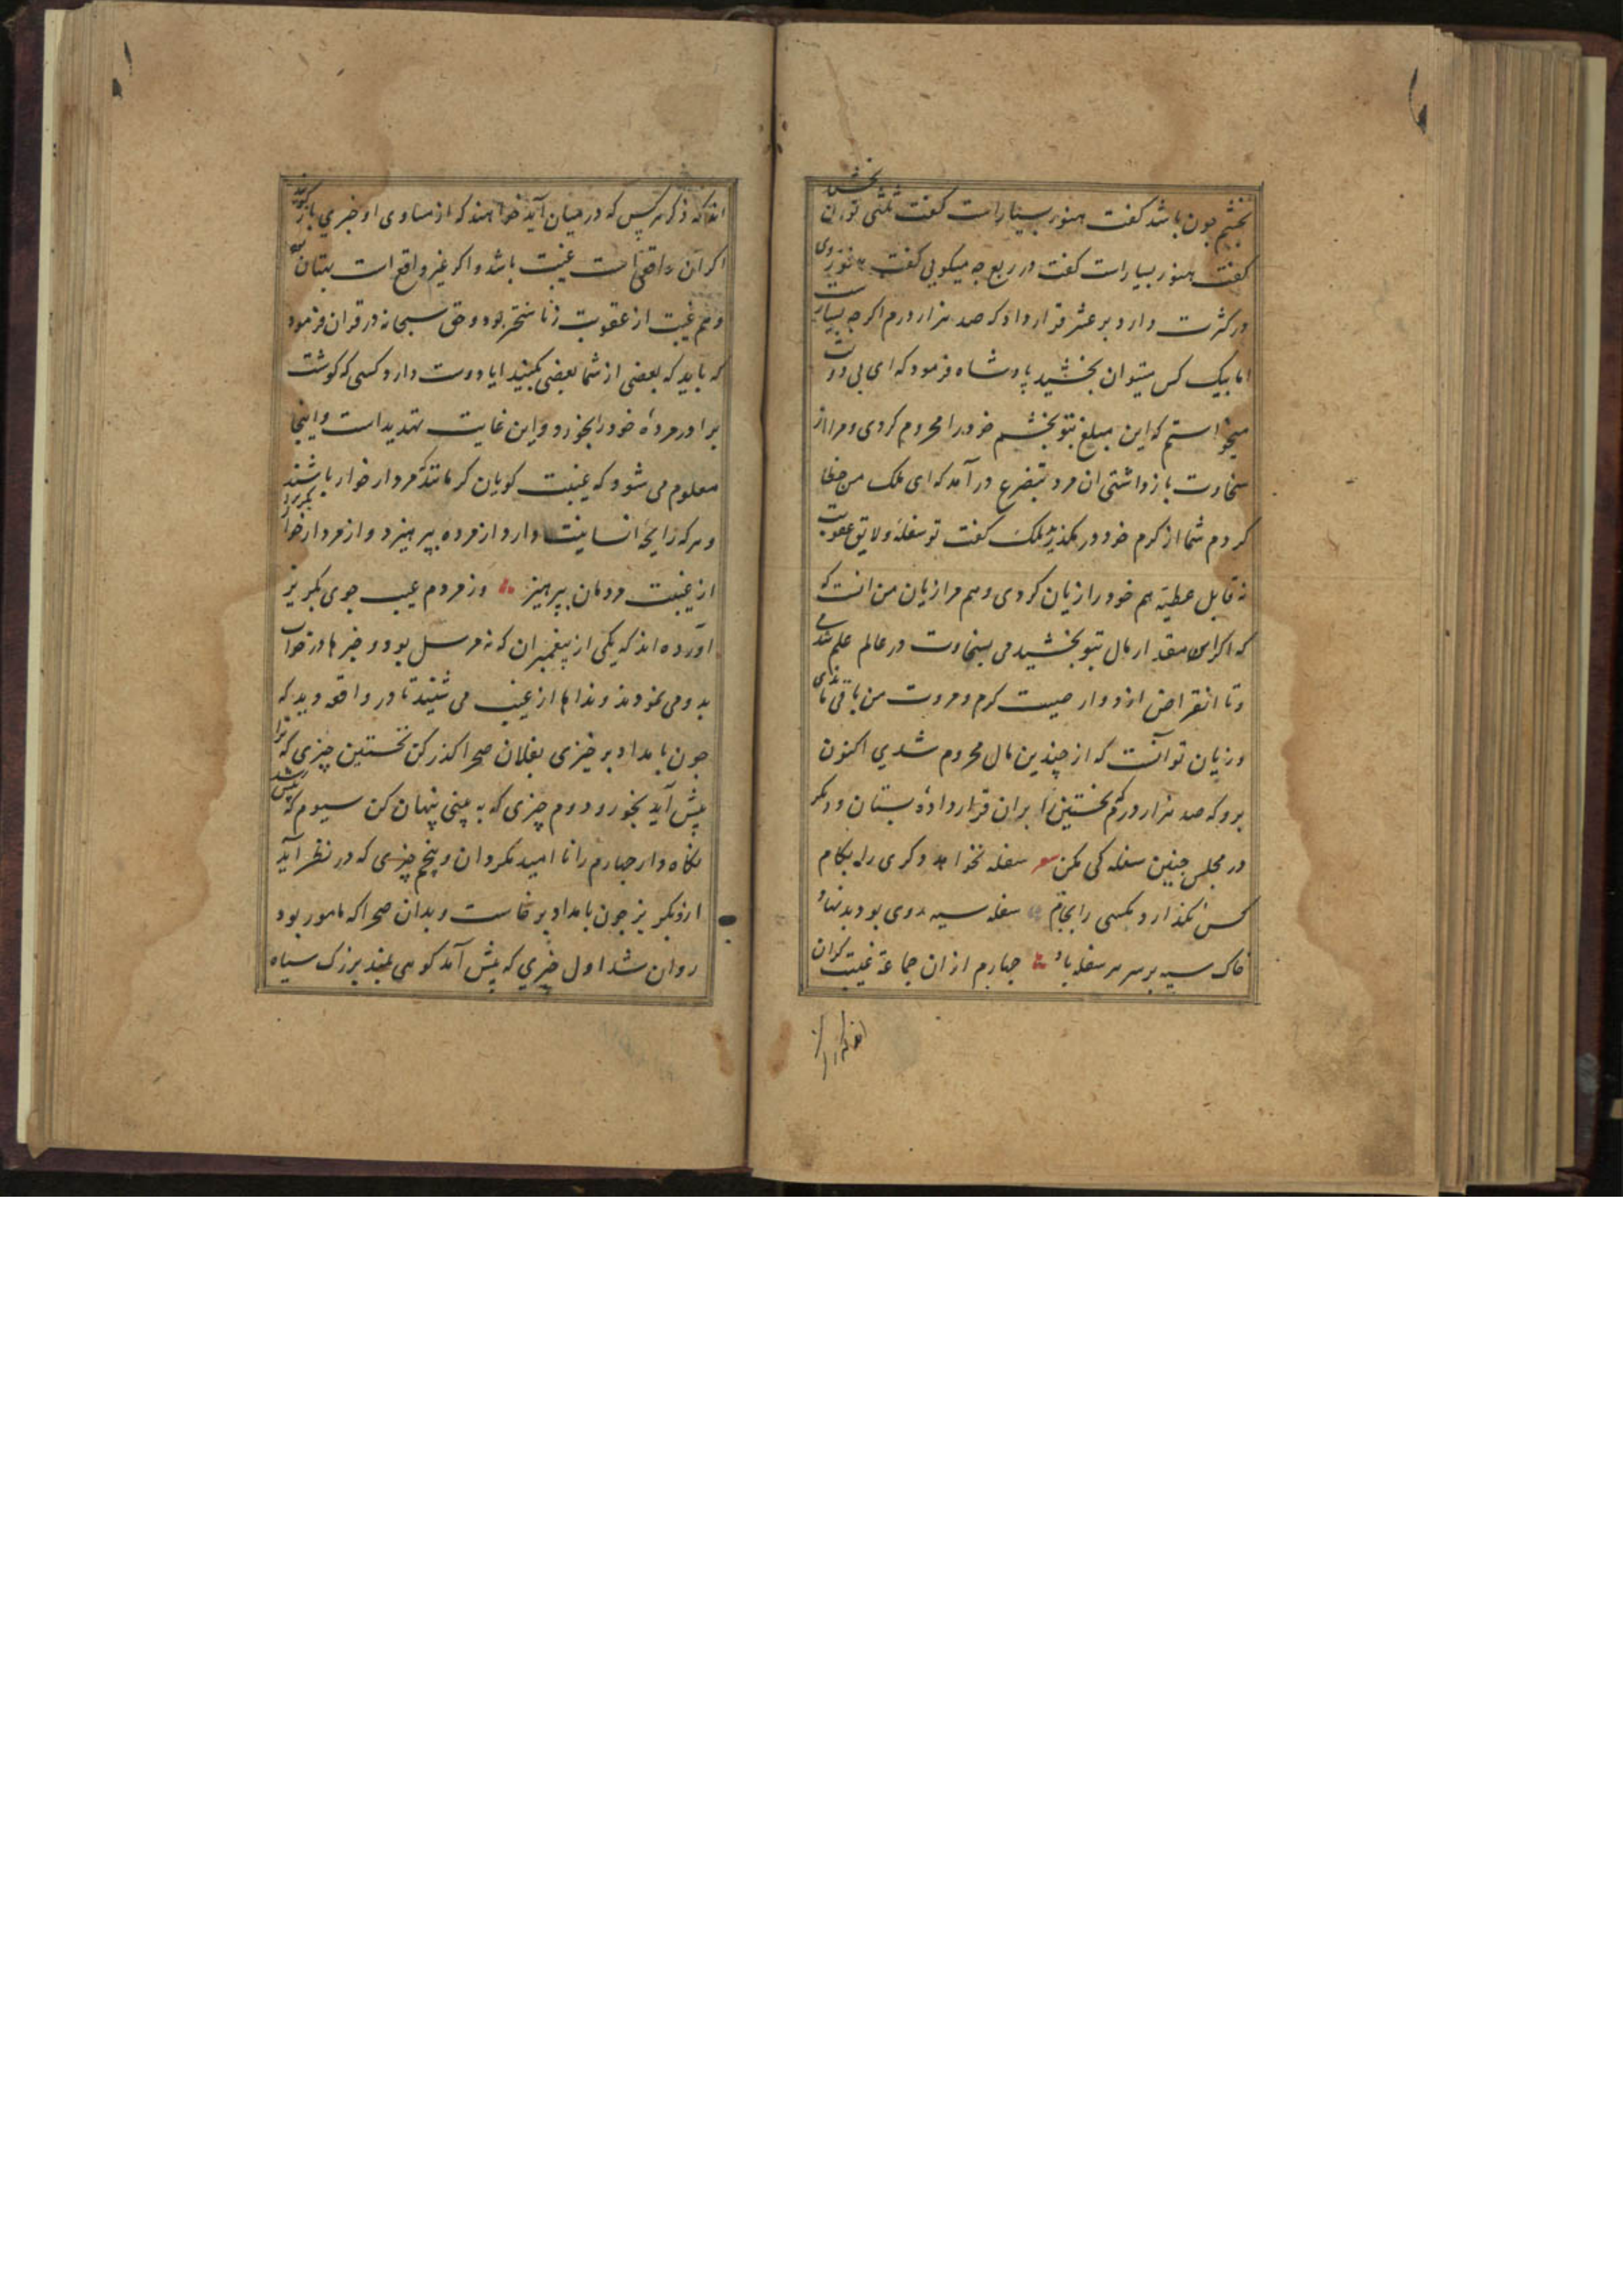 بخشم چون باشد کفت هنوز بسیارست کفت ثلثی توان بخشید
کفت هنوز بسیارست کفت در ربع چه میکویی کفت هنوز روی
در کثرت دارد بر عشر قرار داد که صد هزار درم اکرچه بسیارست
اما بیک کس میتوان بخشید پادشاه فرمود که ای بی دولت
میخواستم که این مبلغ بتو بخشم خود را محروم کردی و مرا از
سخاوت باز داشتی ان مرد بتضرع درآمد که ای ملک من خطا
کردم شما از کرم خود در مکذرید ملک کفت تو سفلهٔ و لایق عقوبت
نه قابل عطیه هم خود را زیان کردی و هم مرا زیان من انست که
که اکر این مقدار مال بتو بخشیدمی بسخاوت در عالم علم شدمی
و تا انقراض ادوار صیت کرم و مروت من باقی ماندی
و زیان تو آنست که از چندین مال محروم شدی اکنون
برو که صد هزار درم نخستین را بران قرار دادهٔ بستان و دیکر
در مجلس چنین سفلکی مکن سفله نخواهد دکری را بکام
کس نکذارد مکسی را بجام سفله سیه روی بود بد نهاد
خاک سیه بر سر سفله باد چهارم از ان جماعة غیبت کران
اند که ذکر
اند که ذکر هر کس که در میان آید خواهند که از مساوی او خبری باز کویند
اکر ان واقعی است غیبت باشد و اکر غیر واقع است بهتان
و هم غیبت از عقوبت زنا سختر بود و حق سبحانه در قران فرمود
که باید که بعضی از شما بعضی نکنید ایا دوست دارد کسی که کوشت
برادر مردهٔ خود را بخورد و این غایت تهدید است و اینجا
معلوم می شود که غیبت کویان کرمانند مردار خوار باشند
و هر که رایحه انسانیت دارد از مرده بپرهیزد و از مردار خوار
از غیبت مردمان بپرهیز وز مردم عیب جوی بکریز
آورده اند که یکی از پیغمبران که نه مرسل بود و خبرها در خواب
بدو می نمودند و نداها از غیب می شنید تا در واقعه دید که
چون بامداد برخیزی بفلان صحرا کذر کن نخستین چیزی که ترا
پیش آید بخور و دوم چیزی که به بینی پنهان کن سیوم که پیش
نکاه دار چهارم را نا امید مکردان و پنجم چیزی که در نظر آید
ازو بکریز چون بامداد برخاست و بدان صحرا که مامور بود
روان شد اول چیزی که پیش آمد کوهی بلند بزرک سیاه